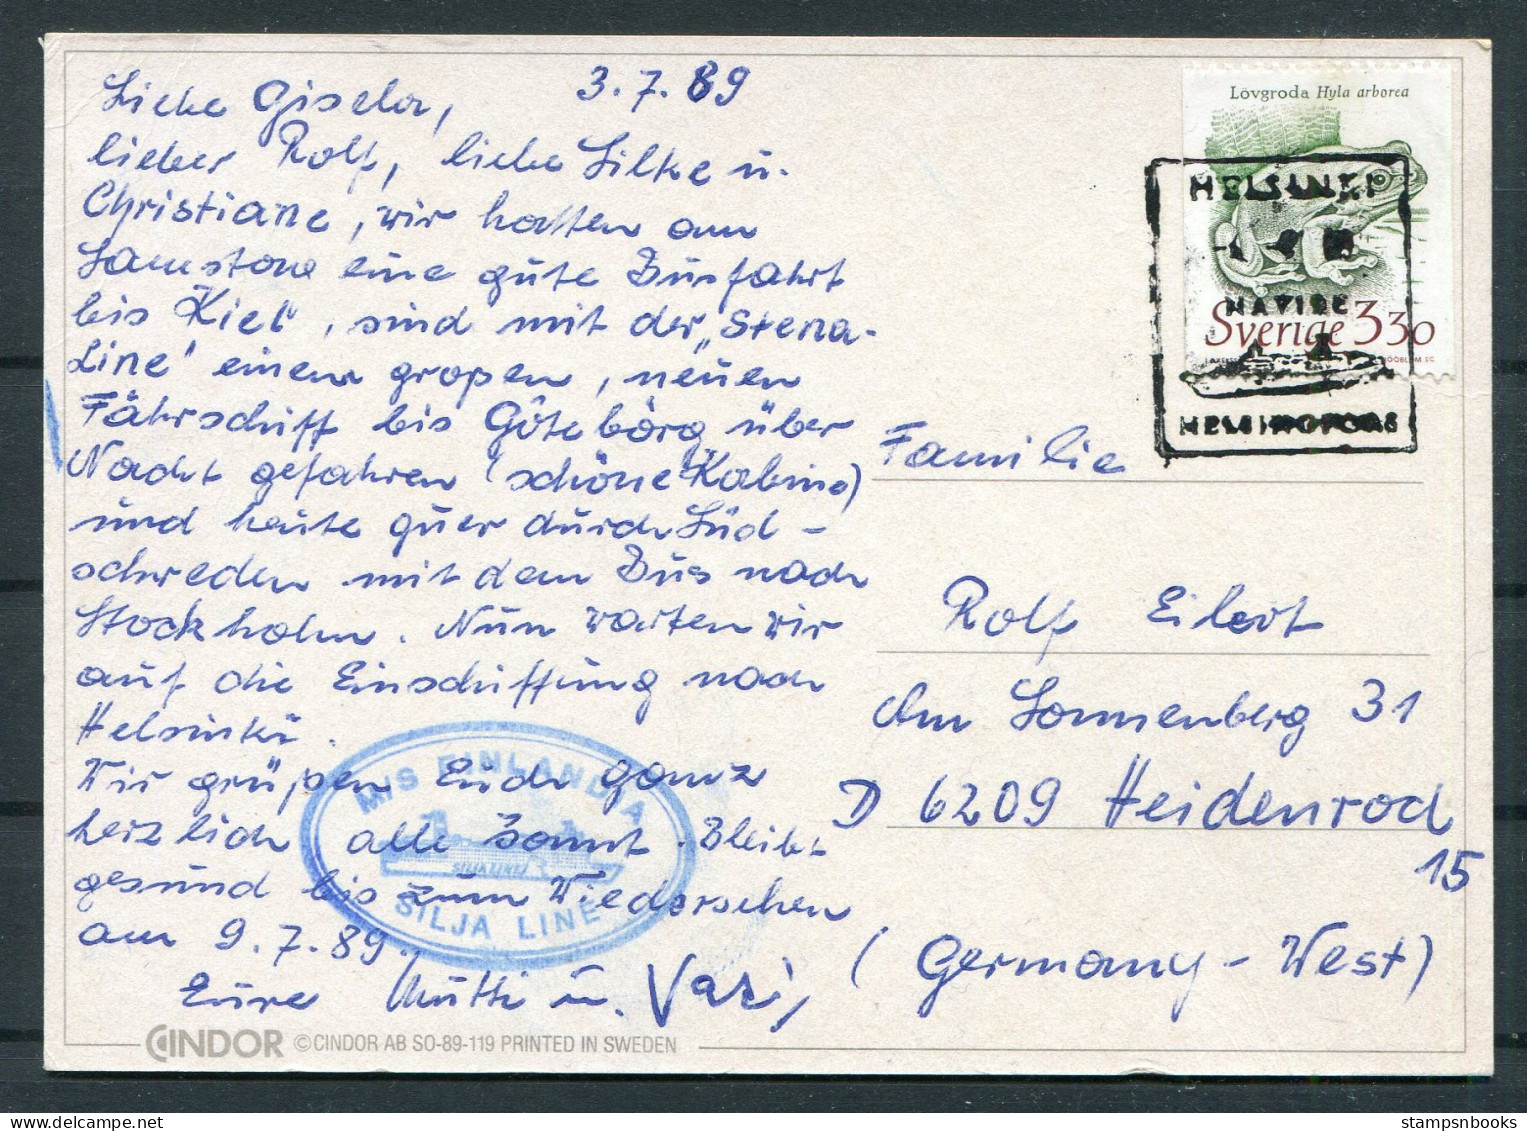 3.7.89
Liebe Gisela,
lieber Rolf, liebe Silke u.
Christiane, wir hatten am
Samstag eine gute Busfahrt
bis Kiel, sind mit der „Stena-
Line" einem großen, neuen
Fährschiff bis Göteborg über
Nacht gefahren (schöne Kabine)
und heute quer durch Süd-
schweden mit dem Bus nach
Stockholm. Nun warten wir
auf die Einschiffung nach
Helsinki.
Wir grüßen Euch ganz
herzlich alle samt. Bleibt
gesund bis zum Wiedersehen
am 9.7.89.
Eure Mutti u. Vati,
M/S FINLANDIA
SILJA LINE
SILJA LINE
CINDOR © CINDOR AB SO-89-119 PRINTED IN SWEDEN
Lövgroda Hyla arborea
Sverige 330
HELSINKI
NAVIRE
HELSINGFORS
Familie
Rolf Eilert
Am Sonnenberg 31
D 6209 Heidenrod
15
(Germany-West)
stampsnbooks